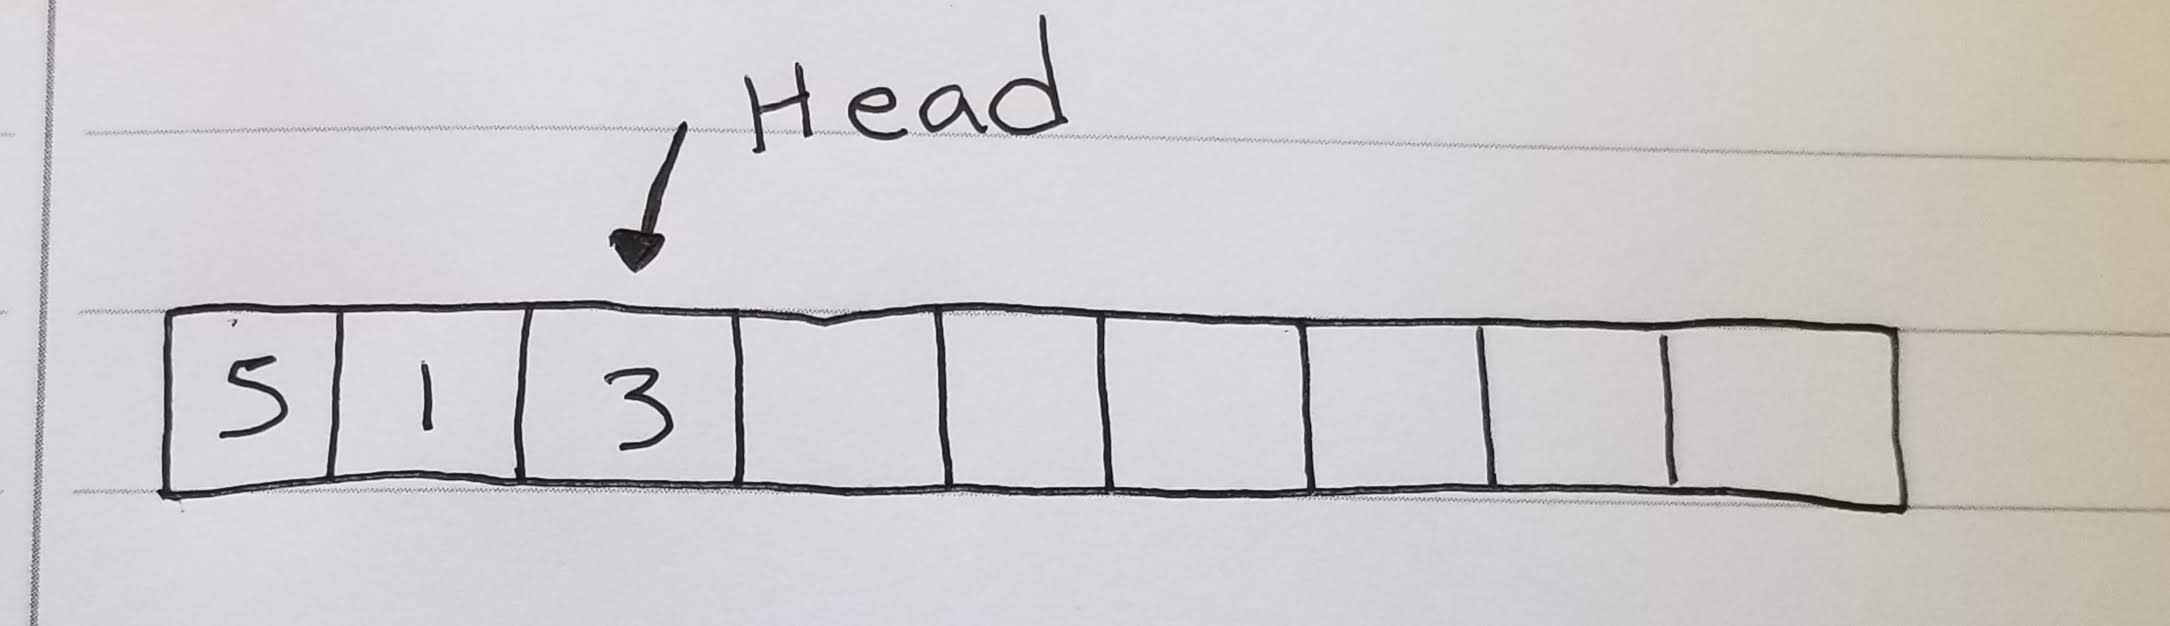 Head
5 1 3